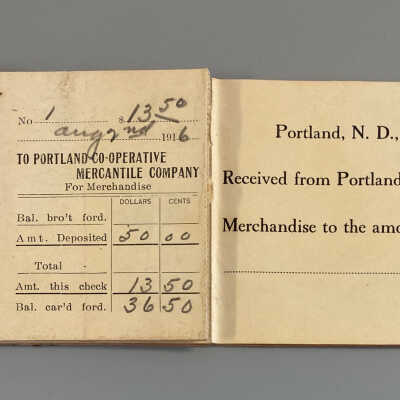 No 1 $ 13 50
aug 2nd 1916
TO PORTLAND CO-OPERATIVE
MERCANTILE COMPANY
For Merchandise
DOLLARS CENTS
Bal. bro't ford.
Amt. Deposited 50 00
Total -
Amt. this check 13 50
Bal. car'd ford. 36 50
Portland, N. D.,
Received from Portland
Merchandise to the amo